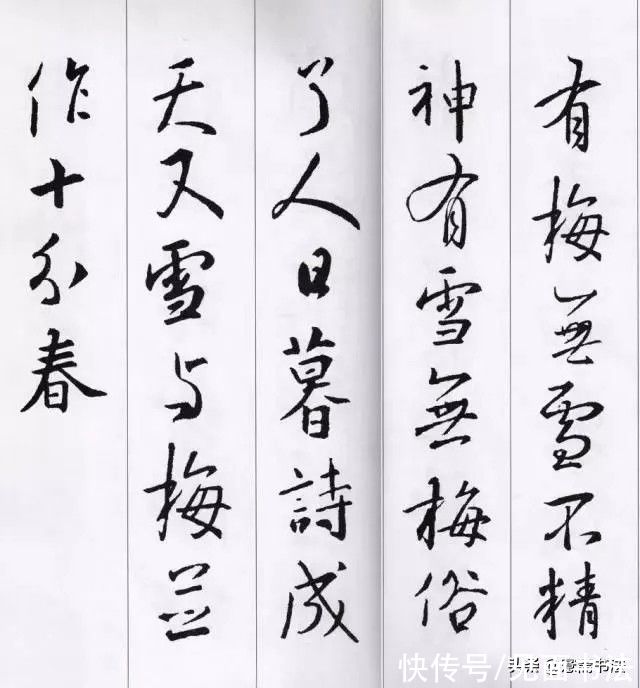 有梅無雪不精
神有雪無梅俗
了人日暮詩成
天又雪与梅並
作十分春
快传号/